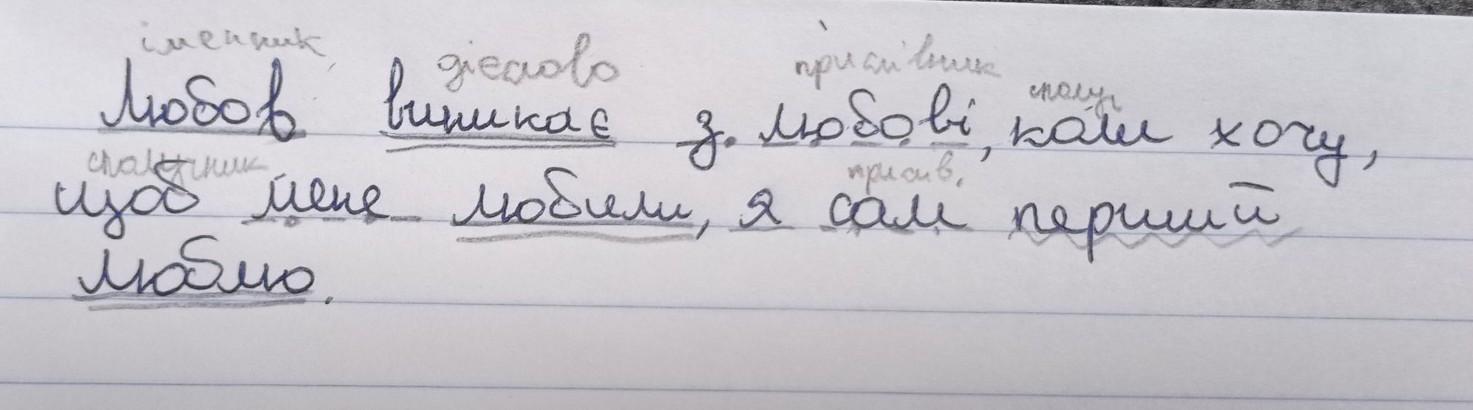 іменник дієслово прислівник
Любов виникає з любові, коли хочу,
сполучник присл.
щоб мене любили, я сам перший
люблю.